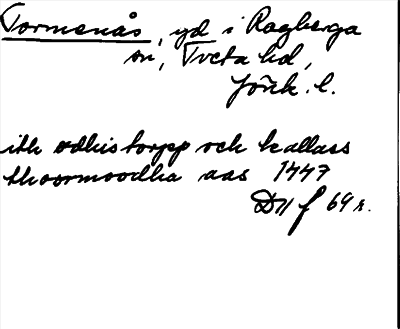 Tormenås, yd i Rogberga
sn, Tveta hd,
Jönk. l.
ith ødhistorpp och kallass
thoormoodha aas 1447
D11 f 69 r.